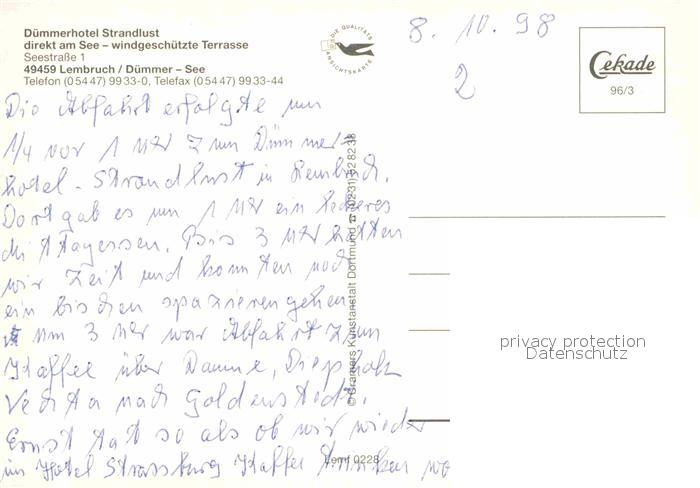 Dümmerhotel Strandlust
direkt am See – windgeschützte Terrasse
Seestraße 1
49459 Lembruch / Dümmer – See
Telefon (0 54 47) 99 33-0, Telefax (0 54 47) 99 33-44
DIE QUALITÄTS
ANSICHTSKARTE
8. 10. 98
2
Cekade
96/3
Die Abfahrt erfolgte um
1/4 vor 1 Uhr zum Dümmer
hotel - Strandlust in Lembruch.
Dort gab es um 1 Uhr ein leckeres
Mittagessen. Bis 3 Uhr hatten
wir Zeit und konnten noch
ein bischen spazierengehen
Um 3 Uhr war Abfahrt zum
Kaffee über Damme, Diepholz
Vechta nach Goldenstedt.
Ernst tat so als ob wir wieder
im Hotel Strassburg Kaffee trinken wo
© Cramers Kunstanstalt Dortmund ☎ (02 31) 62 82 38
Lemf 0228
privacy protection
Datenschutz